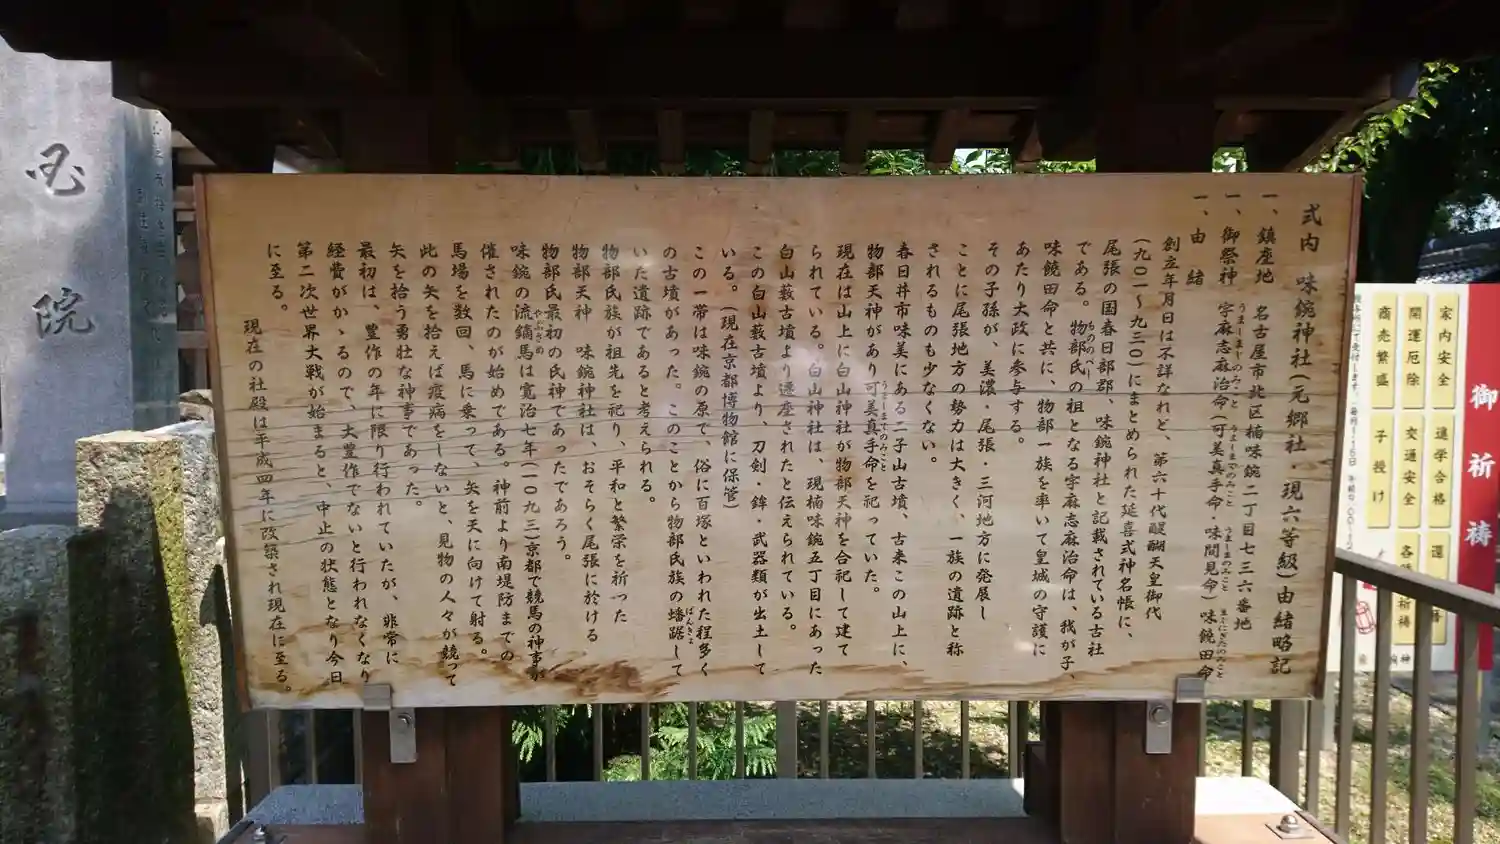 式内 味鋺神社(元郷社・現六等級)由緒略記
一、鎮座地 名古屋市北区楠味鋺二丁目七三六番地
一、御祭神 宇麻志麻治命(可美真手命・味間見命)味鋺田命
うましまじのみこと うましまでのみこと うましまみのみこと まじにぎたのみこと
一、由 緒
創立年月日は不詳なれど、第六十代醍醐天皇御代
(九〇一〜九三〇)にまとめられた延喜式神名帳に、
尾張の国春日部郡、味鋺神社と記載されている古社
である。物部氏の祖となる宇麻志麻治命は、我が子、
もののべし
味饒田命と共に、物部一族を率いて皇城の守護に
あたり大政に参与する。
その子孫が、美濃・尾張・三河地方に発展し
ことに尾張地方の勢力は大きく、一族の遺跡と称
されるものも少なくない。
春日井市味美にある二子山古墳、古来この山上に、
物部天神があり可美真手命を祀っていた。
うましまでのみこと
現在は山上に白山神社が物部天神を合祀して建て
られている。白山神社は、現楠味鋺五丁目にあった
白山薮古墳より遷座されたと伝えられている。
この白山薮古墳より、刀剣・鉾・武器類が出土して
いる。(現在京都博物館に保管)
この一帯は味鋺の原で、俗に百塚といわれた程多く
の古墳があった。このことから物部氏族の蟠踞して
ばんきょ
いた遺跡であると考えられる。
物部氏族が祖先を祀り、平和と繁栄を祈った
物部天神 味鋺神社は、おそらく尾張に於ける
物部氏最初の氏神であったであろう。
味鋺の流鏑馬は寛治七年(一〇九三)京都で競馬の神事が
やぶさめ
催されたのが始めである。神前より南堤防までの
馬場を数回、馬に乗って、矢を天に向けて射る。
此の矢を拾えば疫病をしないと、見物の人々が競って
矢を拾う勇壮な神事であった。
最初は、豊作の年に限り行われていたが、非常に
経費がかゝるので、大豊作でないと行われなくなり
第二次世界大戦が始まると、中止の状態となり今日
に至る。
現在の社殿は平成四年に改築され現在に至る。
御祈祷
家内安全 進学合格
開運厄除 交通安全
商売繁盛 子授け
院